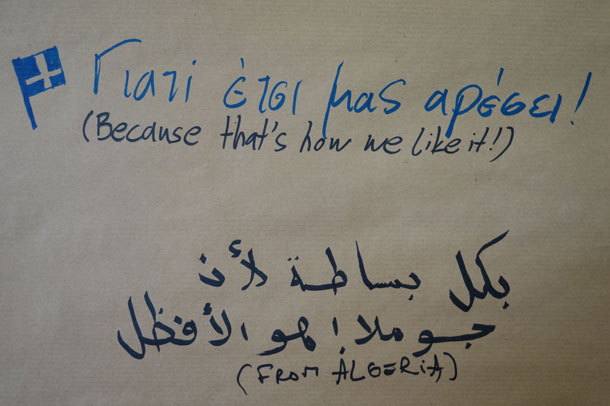 Γιατί έτσι μας αρέσει!
(Because that's how we like it!)
بكل بساطة لأن
جو ملا! هو الأفظل
(FROM ALGERiA)